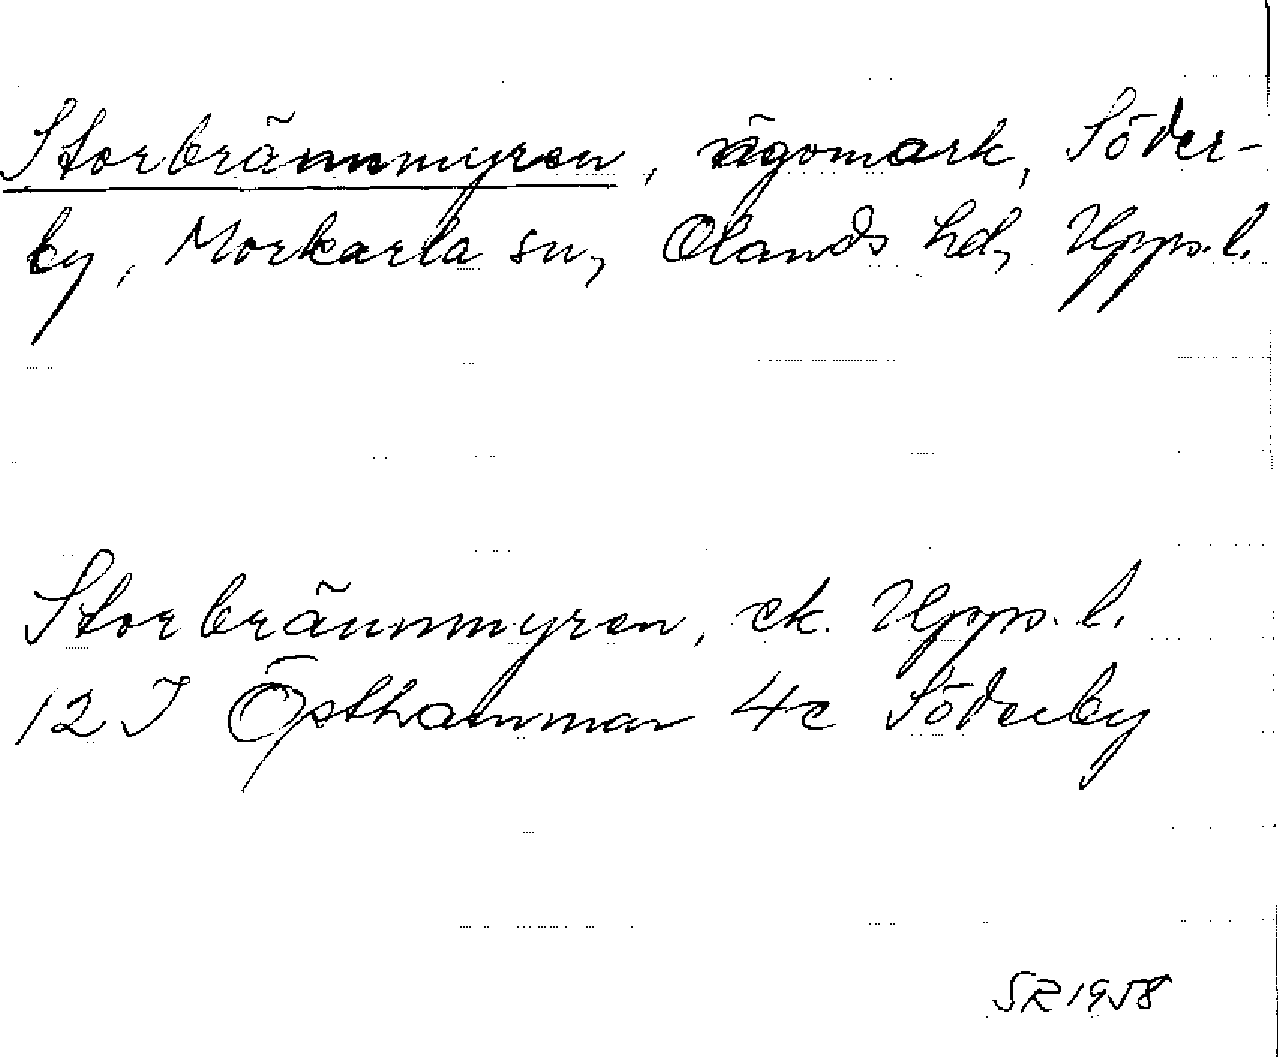 Storbrännmyren, ägomark, Söder-
by, Morkarla sn, Olands hd, Upps. l.
Storbrännmyren, ek. Upps. l.
12 I Östhammar 4c Söderby
SR 1958